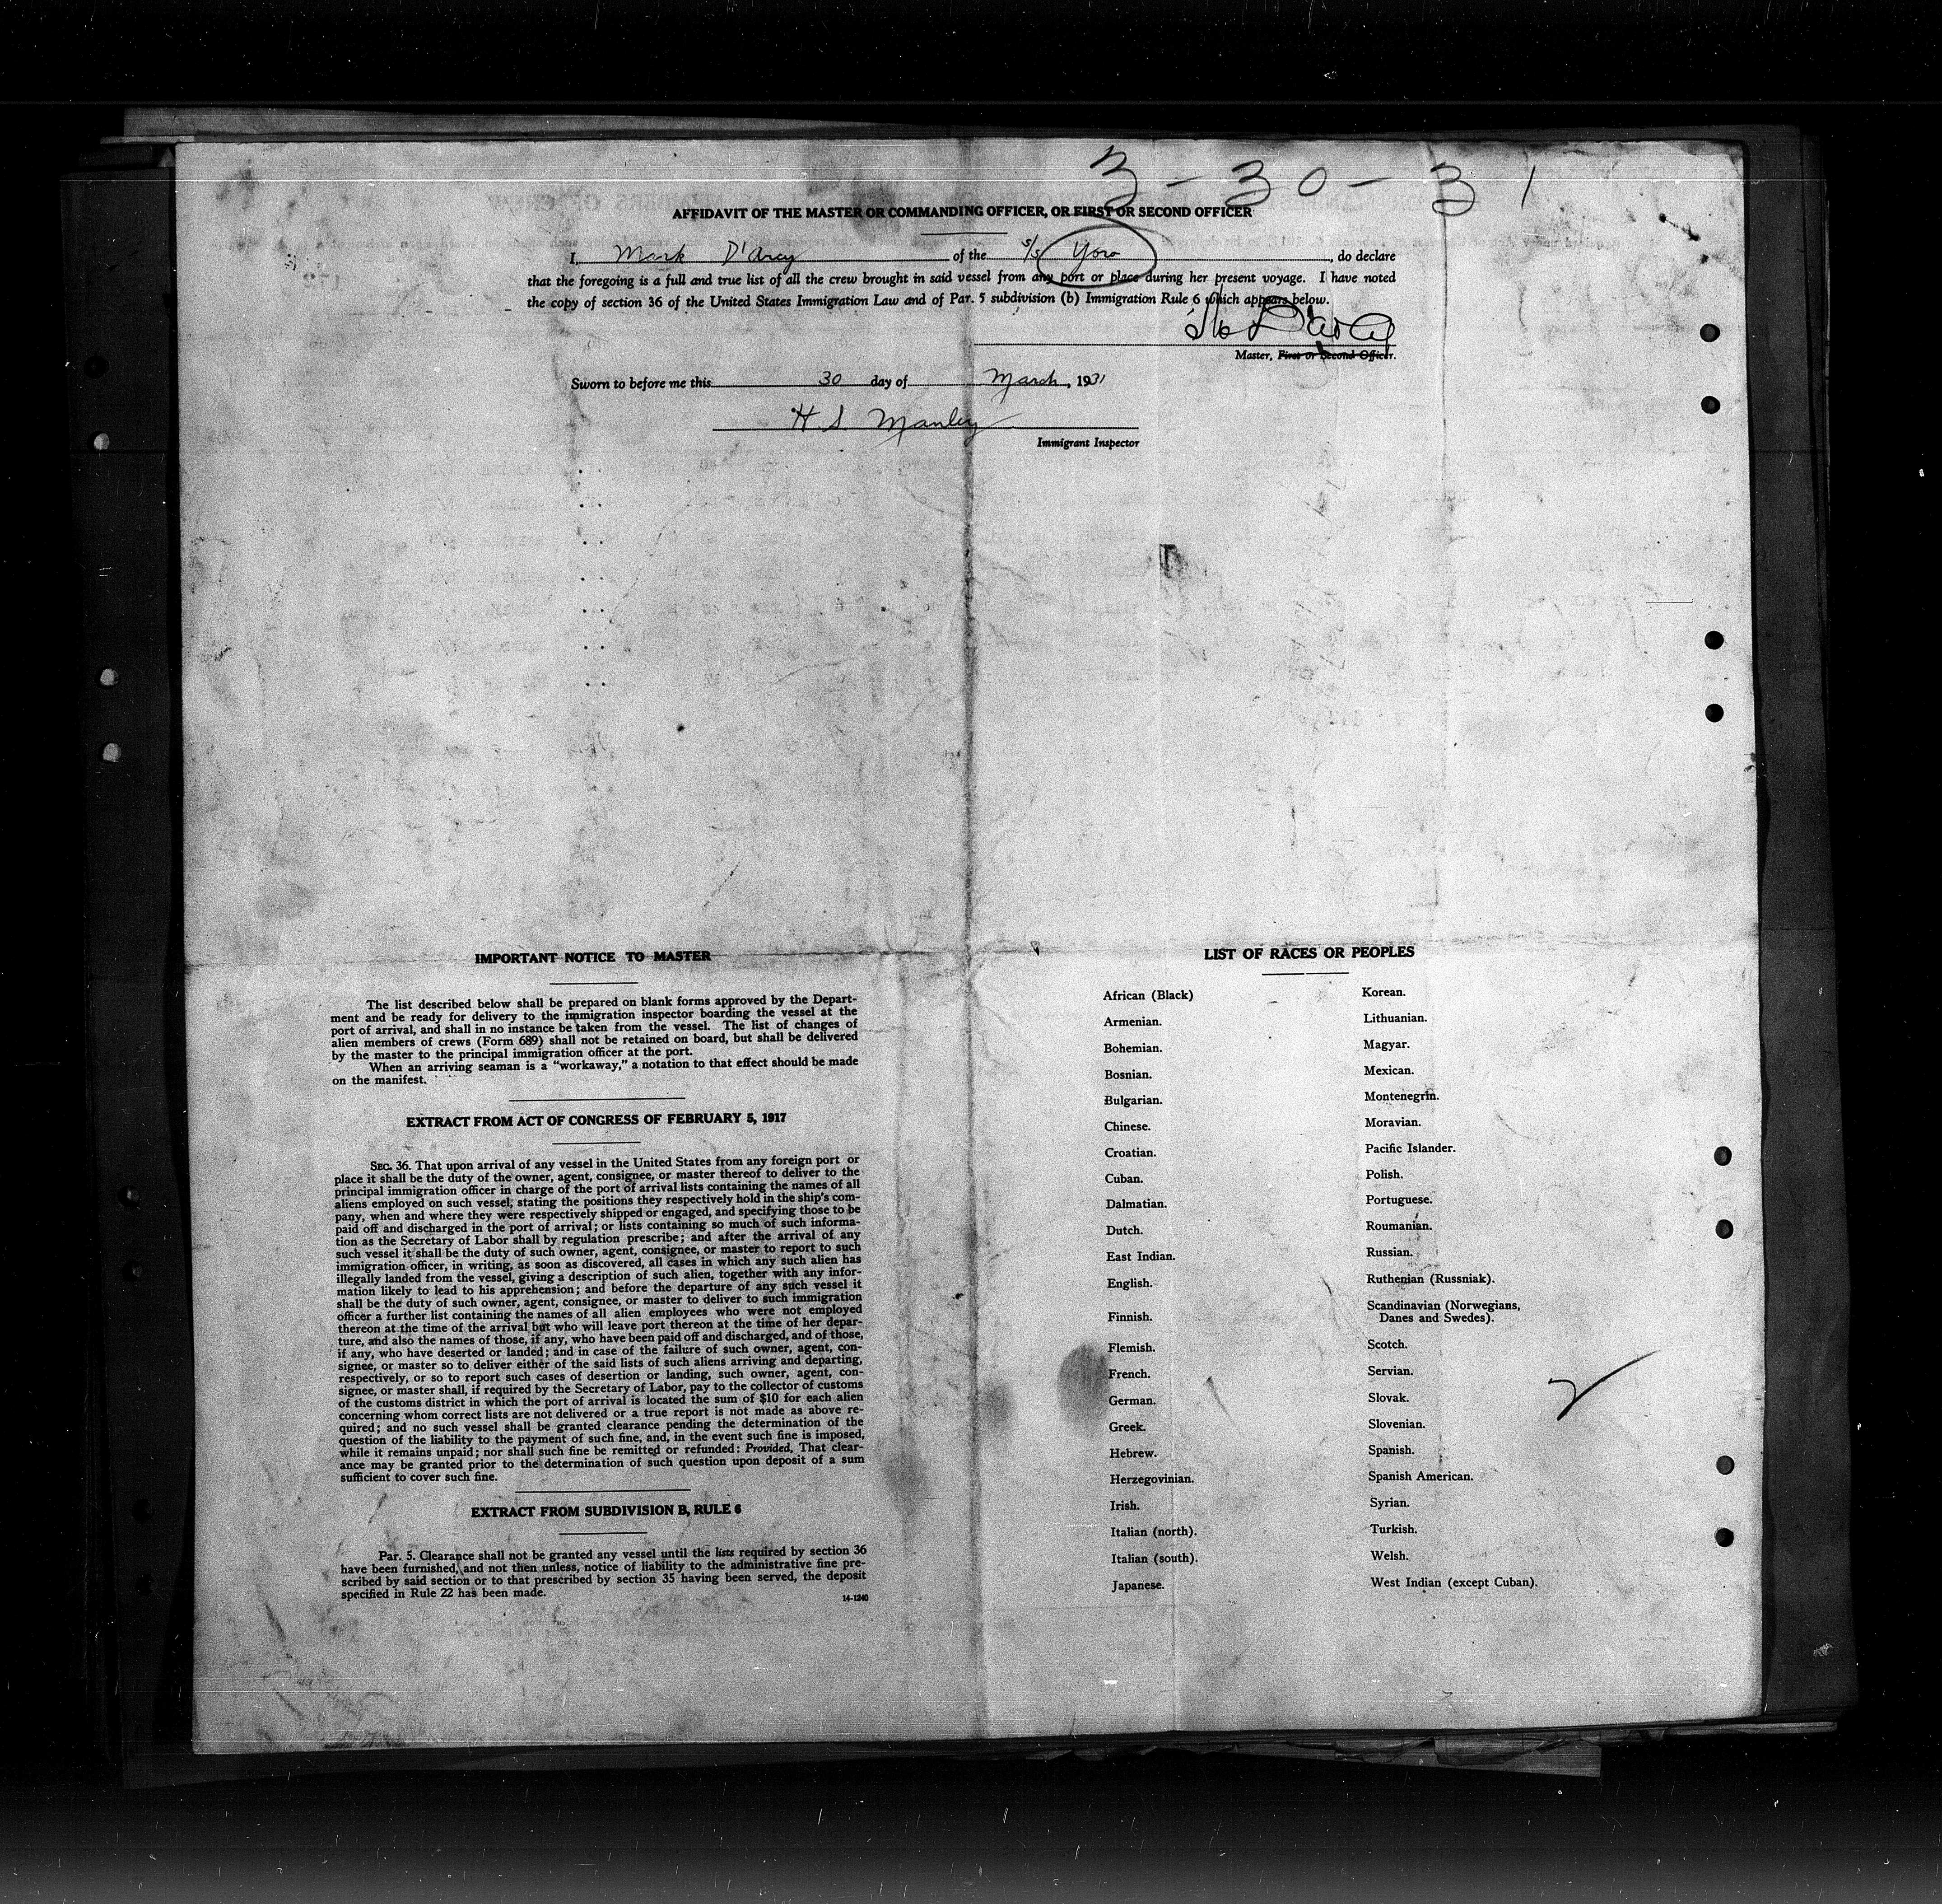 3-30-31
AFFIDAVIT OF THE MASTER OR COMMANDING OFFICER, OR FIRST OR SECOND OFFICER
I, Mark D'Arcy of the S/S Yoro, do declare
that the foregoing is a full and true list of all the crew brought in said vessel from any port or place during her present voyage. I have noted
the copy of section 36 of the United States Immigration Law and of Par. 5 subdivision (b) Immigration Rule 6 which appears below.
M D'Arcy
Master, First or Second Officer.
Sworn to before me this 30 day of March, 1931
H S Manley
Immigrant Inspector
IMPORTANT NOTICE TO MASTER
The list described below shall be prepared on blank forms approved by the Depart-
ment and be ready for delivery to the immigration inspector boarding the vessel at the
port of arrival, and shall in no instance be taken from the vessel. The list of changes of
alien members of crews (Form 689) shall not be retained on board, but shall be delivered
by the master to the principal immigration officer at the port.
When an arriving seaman is a "workaway," a notation to that effect should be made
on the manifest.
EXTRACT FROM ACT OF CONGRESS OF FEBRUARY 5, 1917
SEC. 36. That upon arrival of any vessel in the United States from any foreign port or
place it shall be the duty of the owner, agent, consignee, or master thereof to deliver to the
principal immigration officer in charge of the port of arrival lists containing the names of all
aliens employed on such vessel, stating the positions they respectively hold in the ship's com-
pany, when and where they were respectively shipped or engaged, and specifying those to be
paid off and discharged in the port of arrival; or lists containing so much of such informa-
tion as the Secretary of Labor shall by regulation prescribe; and after the arrival of any
such vessel it shall be the duty of such owner, agent, consignee, or master to report to such
immigration officer, in writing, as soon as discovered, all cases in which any such alien has
illegally landed from the vessel, giving a description of such alien, together with any infor-
mation likely to lead to his apprehension; and before the departure of any such vessel it
shall be the duty of such owner, agent, consignee, or master to deliver to such immigration
officer a further list containing the names of all alien employees who were not employed
thereon at the time of the arrival but who will leave port thereon at the time of her depar-
ture, and also the names of those, if any, who have been paid off and discharged, and of those,
if any, who have deserted or landed; and in case of the failure of such owner, agent, con-
signee, or master so to deliver either of the said lists of such aliens arriving and departing,
respectively, or so to report such cases of desertion or landing, such owner, agent, con-
signee, or master shall, if required by the Secretary of Labor, pay to the collector of customs
of the customs district in which the port of arrival is located the sum of $10 for each alien
concerning whom correct lists are not delivered or a true report is not made as above re-
quired; and no such vessel shall be granted clearance pending the determination of the
question of the liability to the payment of such fine, and, in the event such fine is imposed,
while it remains unpaid; nor shall such fine be remitted or refunded: Provided, That clear-
ance may be granted prior to the determination of such question upon deposit of a sum
sufficient to cover such fine.
EXTRACT FROM SUBDIVISION B, RULE 6
Par. 5. Clearance shall not be granted any vessel until the lists required by section 36
have been furnished, and not then unless, notice of liability to the administrative fine pre-
scribed by said section or to that prescribed by section 35 having been served, the deposit
specified in Rule 22 has been made.
14-1240
LIST OF RACES OR PEOPLES
African (Black)
Armenian.
Bohemian.
Bosnian.
Bulgarian.
Chinese.
Croatian.
Cuban.
Dalmatian.
Dutch.
East Indian.
English.
Finnish.
Flemish.
French.
German.
Greek.
Hebrew.
Herzegovinian.
Irish.
Italian (north).
Italian (south).
Japanese.
Korean.
Lithuanian.
Magyar.
Mexican.
Montenegrin.
Moravian.
Pacific Islander.
Polish.
Portuguese.
Roumanian.
Russian.
Ruthenian (Russniak).
Scandinavian (Norwegians,
Danes and Swedes).
Scotch.
Servian.
Slovak.
Slovenian.
Spanish.
Spanish American.
Syrian.
Turkish.
Welsh.
West Indian (except Cuban).